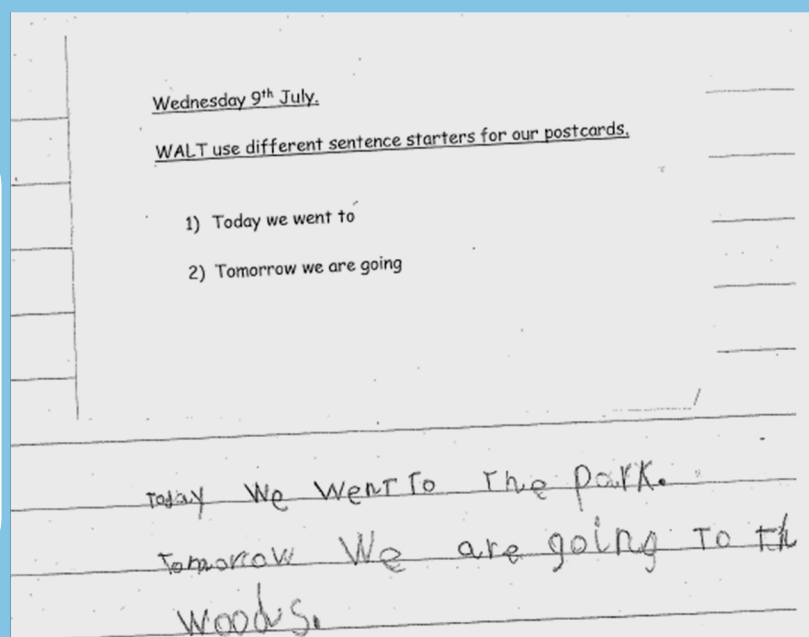 Wednesday 9th July.
WALT use different sentence starters for our postcards.
1) Today we went to
2) Tomorrow we are going
Today we went To The park.
Tomorrow we are going To th
woods.